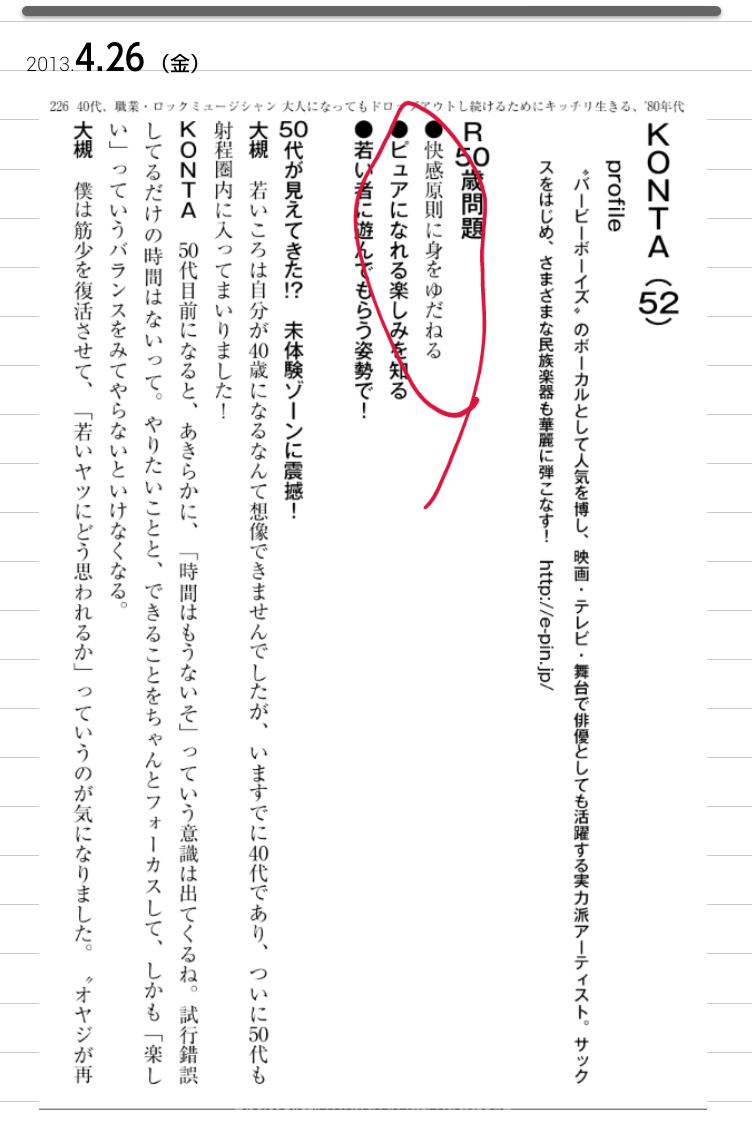 2013.4.26（金）
226 40代、職業・ロックミュージシャン 大人になってもドロップアウトし続けるためにキッチリ生きる、'80年代
KONTA（52）
profile
〝バービーボーイズ〟のボーカルとして人気を博し、映画・テレビ・舞台で俳優としても活躍する実力派アーティスト。サック
スをはじめ、さまざまな民族楽器も華麗に弾こなす！　http://e-pin.jp/
R50歳問題
●快感原則に身をゆだねる
●ピュアになれる楽しみを知る
●若い者に遊んでもらう姿勢で！
50代が見えてきた!?　未体験ゾーンに震撼！
大槻　若いころは自分が40歳になるなんて想像できませんでしたが、いますでに40代であり、ついに50代も
射程圏内に入ってまいりました！
KONTA　50代目前になると、あきらかに、「時間はもうないそ」っていう意識は出てくるね。試行錯誤
してるだけの時間はないって。やりたいことと、できることをちゃんとフォーカスして、しかも「楽し
い」っていうバランスをみてやらないといけなくなる。
大槻　僕は筋少を復活させて、「若いヤツにどう思われるか」っていうのが気になりました。〝オヤジが再